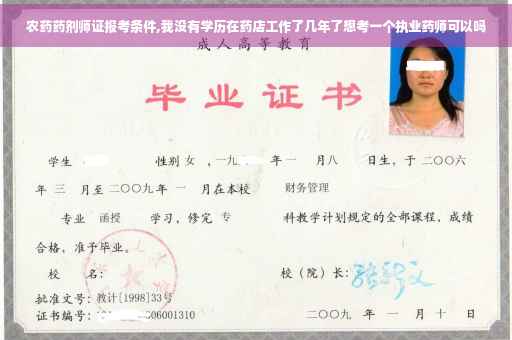 农药药剂师证报考条件,我没有学历在药店工作了几年了想考一个执业药师可以吗
成人高等教育
毕业证书
学生 性别 女 ,一九 年 一 月八 日生,于 二〇〇六
年 三 月至 二〇〇九年 一 月在本校 财务管理
专业 函授 学习,修完 专 科教学计划规定的全部课程,成绩
合格,准予毕业。
校 名: 校(院)长:
批准文号:教计[1998]33号
证书编号: 06001310 二〇〇九 年 一 月 十 日